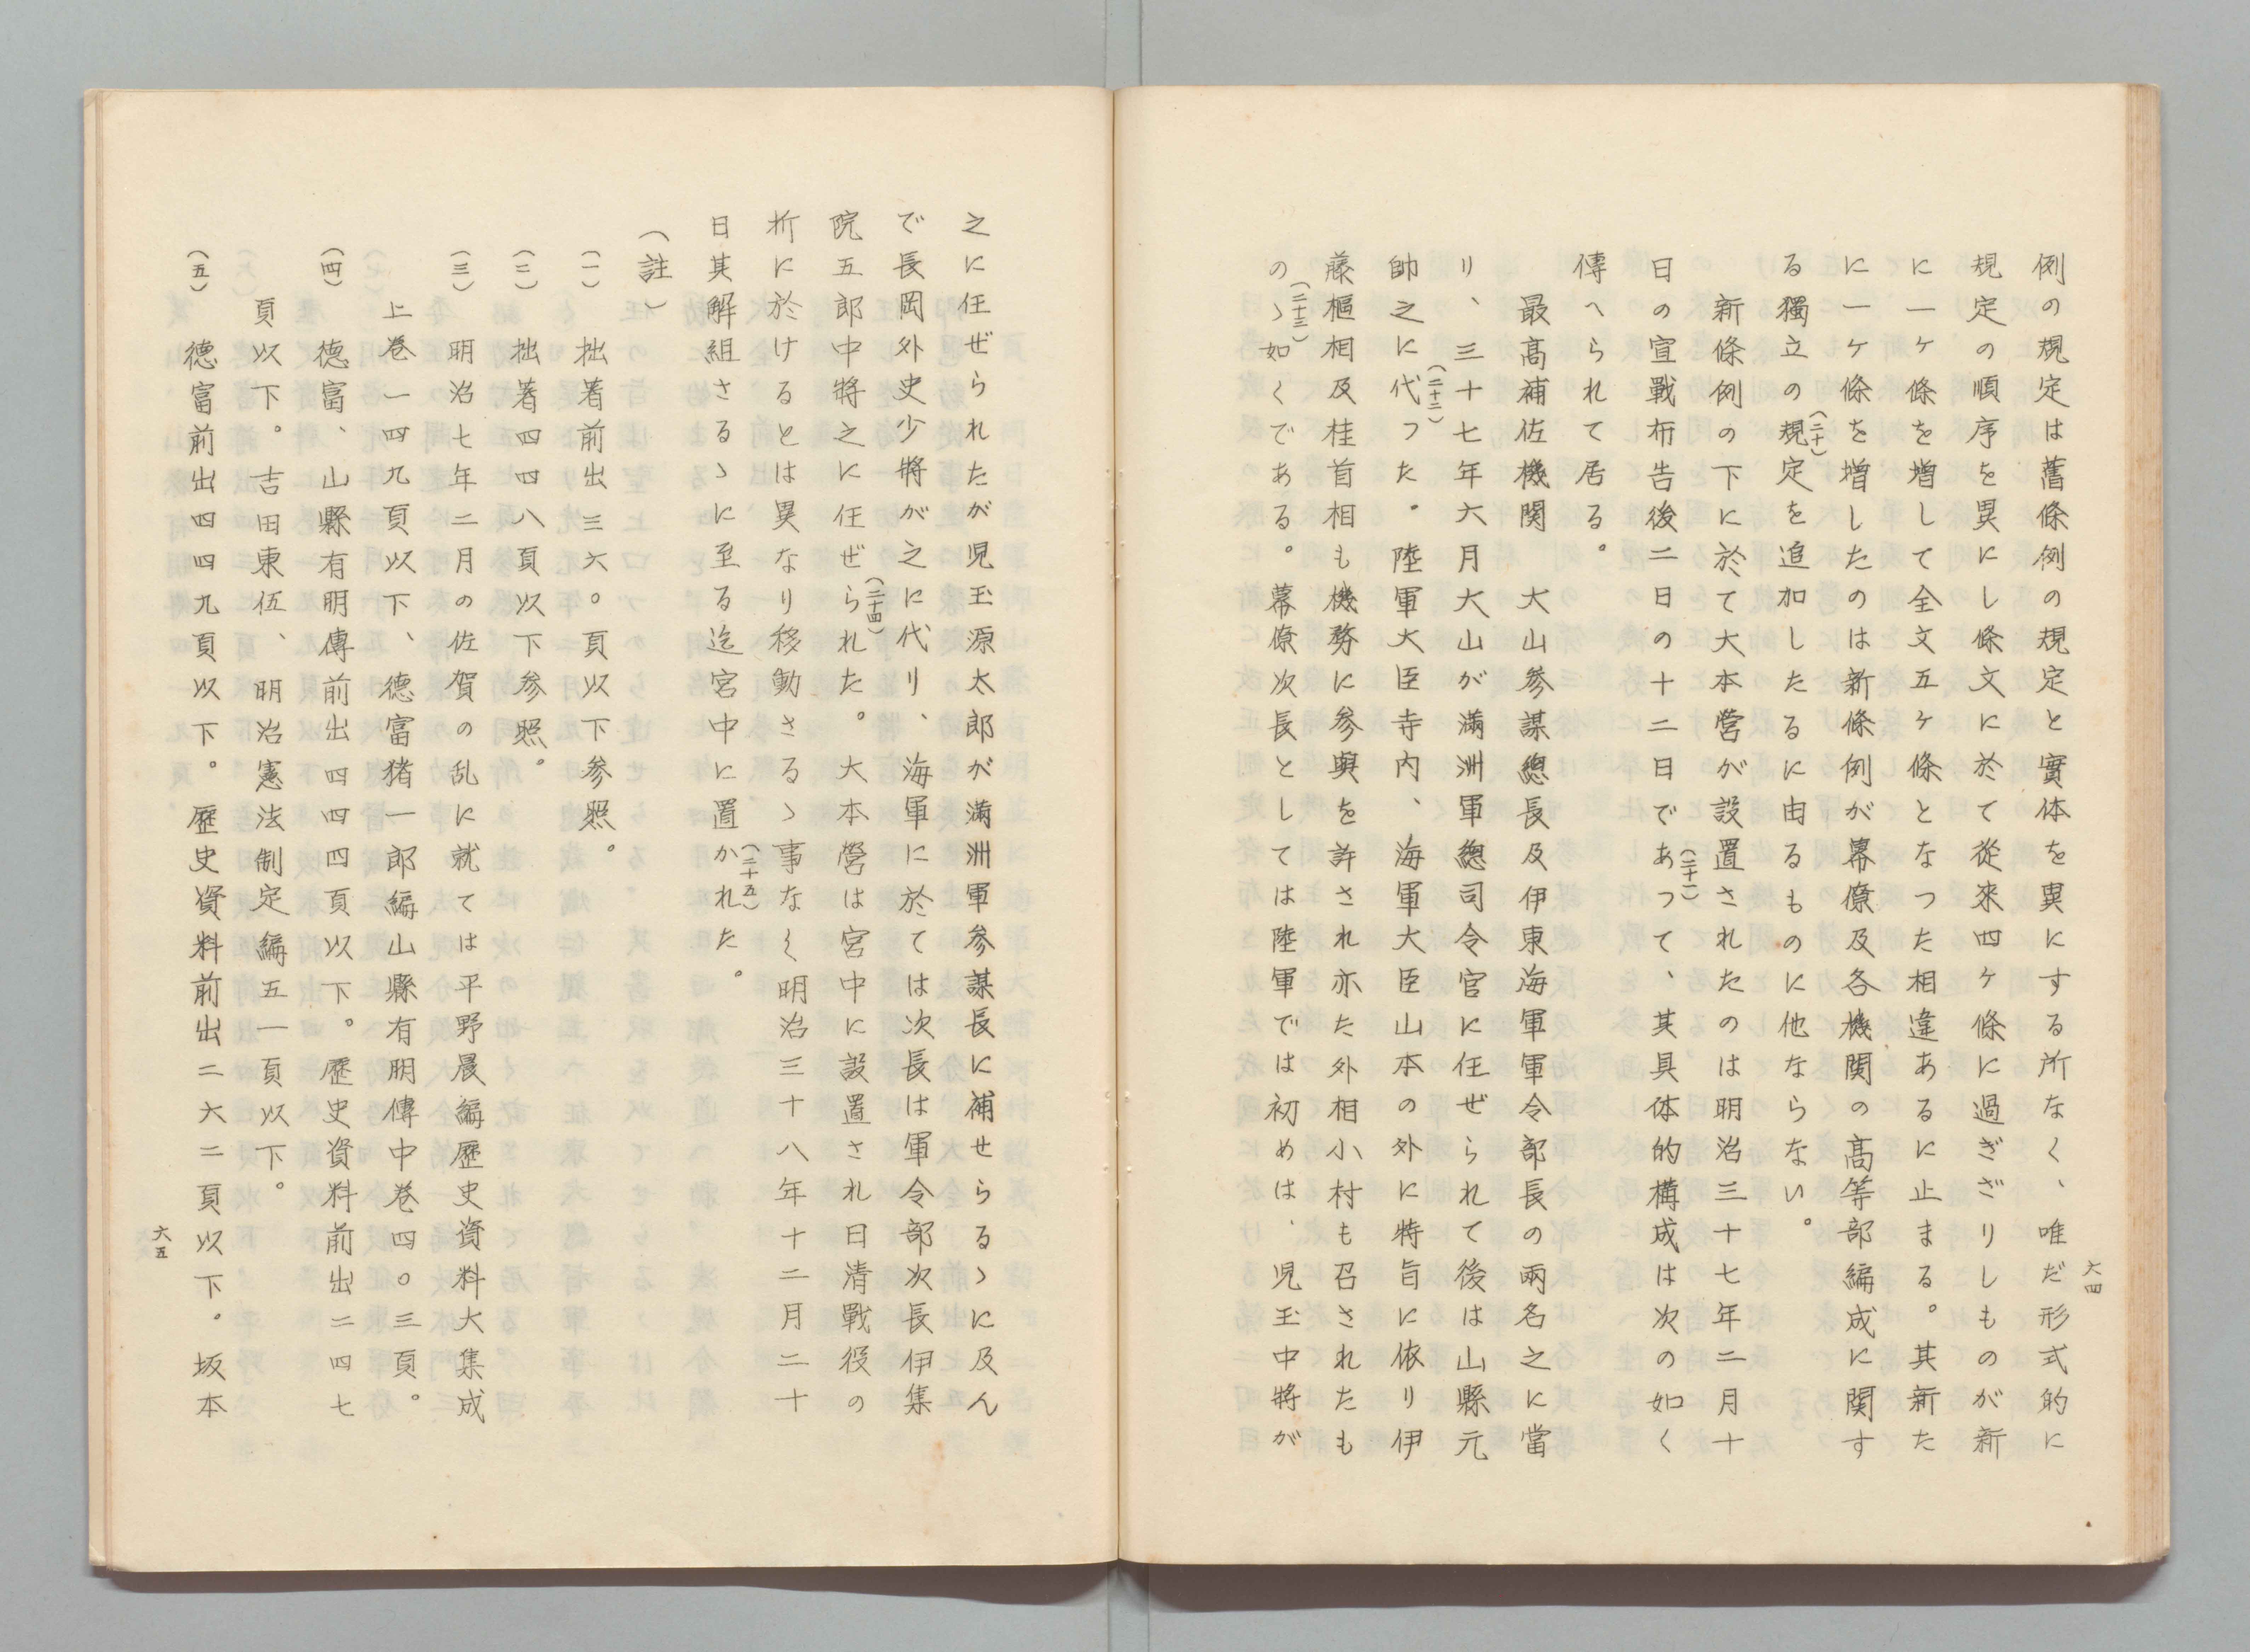 六四
例の規定は舊條例の規定と實体を異にする所なく、唯だ形式的に
規定の順序を異にし條文に於て從来四ケ條に過ぎざりしものが新
に一ケ條を増して全文五ケ條となつた相違あるに止まる。其新た
に一ケ條を増したのは新條例が幕僚及各機関の髙等部編成に関す
る獨立の規定を追加したるに由るものに他ならない。
(二十)
新條例の下に於て大本營が設置されたのは明治三十七年二月十
日の宣戰布告後二日の十二日であつて、其具体的構成は次の如く
(二十一)
傳へられて居る。
最髙補佐機関　大山参謀總長及伊東海軍軍令部長の兩名之に當
り、三十七年六月大山が滿洲軍總司令官に任ぜられて後は山縣元
(二十二)
帥之に代つた。陸軍大臣寺内、海軍大臣山本の外に特旨に依り伊
藤樞相及桂首相も機務に参與を許され亦た外相小村も召されたも
(二十三)
のゝ如くである。幕僚次長としては陸軍では初めは、児玉中將が
之に任ぜられたが児玉源太郎が滿洲軍参謀長に補せらるゝに及ん
で長岡外史少將が之に代り、海軍に於ては次長は軍令部次長伊集
院五郎中將之に任ぜられた。大本營は宮中に設置され日清戰役の
(二十四)
析に於けるとは異なり移動さるゝ事なく明治三十八年十二月二十
日其解組さるゝに至る迄宮中に置かれた。
(二十五)
(註)
(一)　拙著前出三六〇頁以下参照。
(二)　拙著四四八頁以下参照。
(三)　明治七年二月の佐賀の乱に就ては平野晨編歷史資料大集成
上巻一四九頁以下、德富猪一郎編山縣有朋傳中巻四〇三頁。
(四)　德富、山縣有朋傳前出四四四頁以下。歷史資料前出二四七
頁以下。吉田東伍、明治憲法制定編五一頁以下。
(五)　德富前出四四九頁以下。歷史資料前出二六二頁以下。坂本
六五